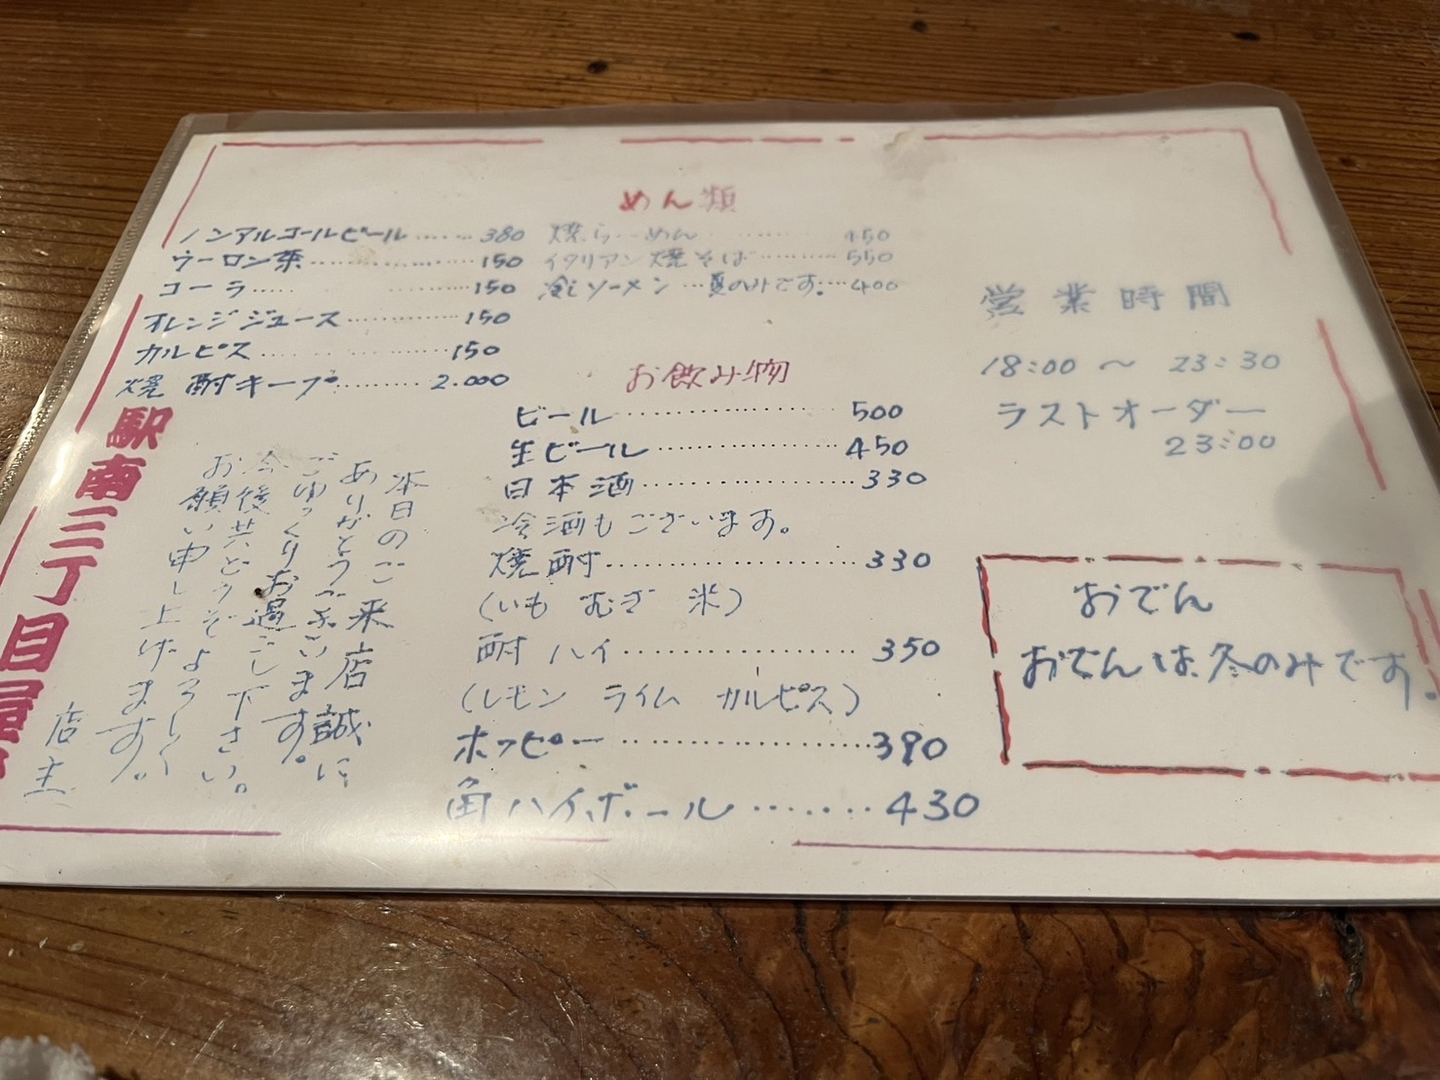 めん類
焼らーめん………450
イタリアン焼そば………550
冷しソーメン…夏のみです。…400
ノンアルコールビール……380
ウーロン茶………150
コーラ………150
オレンジジュース………150
カルピス………150
焼酎キープ………2.000
お飲み物
ビール………500
生ビール………450
日本酒………330
冷酒もございます。
焼酎………330
(いも むぎ 米)
酎ハイ………350
(レモン ライム カルピス)
ホッピー………390
角ハイボール………430
営業時間
18:00 〜 23:30
ラストオーダー
23:00
おでん
おでんは冬のみです。
本日のご来店誠に
ありがとうございます。
ごゆっくりお過ごし下さい。
今後共どうぞよろしく
お願い申し上げます。
店主
駅南三丁目屋